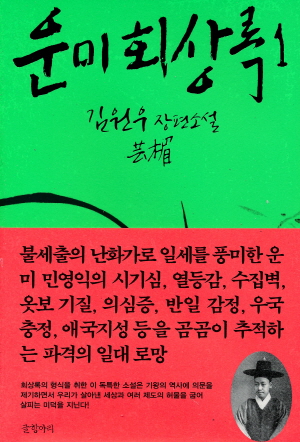 운미 회상록 1
김원우 장편소설
芸楣
불세출의 난화가로 일세를 풍미한 운
미 민영익의 시기심, 열등감, 수집벽,
옷보 기질, 의심증, 반일 감정, 우국
충정, 애국지성 등을 곰곰이 추적하
는 파격의 일대 로망
회상록의 형식을 취한 이 독특한 소설은 기왕의 역사에 의문을
제기하면서 우리가 살아낸 세상과 여러 제도의 허물을 굽어
살피는 미덕을 지닌다!
글항아리